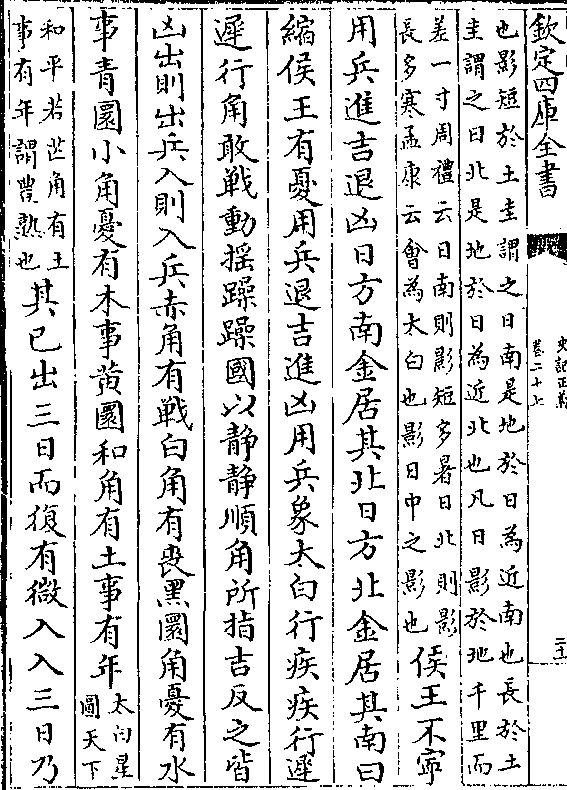 欽定四庫全書
史記正義
卷二十七
也影短於土圭謂之日南是地於日為近南也長於土
圭謂之日北是地於日為近北也凡日影於地千里而
差一寸周禮云日南則影短多暑日北則影
長多寒孟康云會為太白也影日中之影也
侯王不寧
用兵進吉退凶日方南金居其北日方北金居其南曰
縮侯王有憂用兵退吉進凶用兵象太白行疾疾行遲
遲行角敢戰動搖躁躁國以靜靜順角所指吉反之皆
凶出則出兵入則入兵赤角有戰白角有喪黑圜角憂有水
事青圜小角憂有木事黄圜和角有土事有年
太白星
圖天下
和平若芒角有土
事有年謂豐熟也
其已出三日而復有微入入三日乃